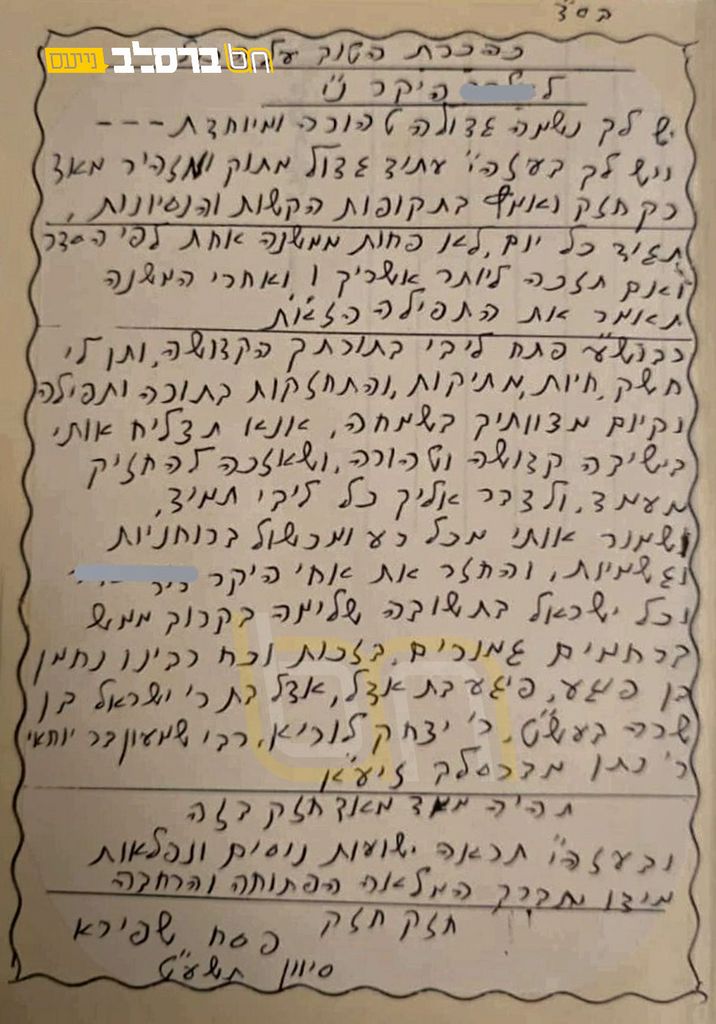 בס"ד
חט ברסלב נייעס
בהכרת הטוב על
ל היקר נ"י
יש לך נשמה גדולה טהורה ומיוחדת---
ויש לך בעזה"י עתיד גדול מתוק ומזהיר מאד
רק חזק ואמץ בתקופות הקשות והנסיונות,
תגיד כל יום, לא פחות ממשנה אחת לפי הסדר
ואם תזכה ליותר אשריך ! ואחרי המשנה
תאמר את התפילה הזאת
רבש"ע פתח ליבי בתורתך הקדושה, ותן לי
חשק, חיות, מתיקות, והתחזקות בתורה ותפילה
וקיום מצוותיך בשמחה, אנא תצליח אותי
בישיבה קדושה וטהורה, ושאזכה להחזיק
מעמד, ולדבר אליך כל ליבי תמיד,
ושמור אותי מכל רע ומכשול ברוחניות
וגשמיות, והחזר את אחי היקר
וכל ישראל בתשובה שלימה בקרוב ממש
ברחמים גמורים, בזכות וכח רבינו נחמן
בן פיגע, פיגע בת אדל, אדל בת ר' ישראל בן
שרה בעש"ט, ר' יצחק לוריא, רבי שמעון בר יוחאי
ר' נתן מברסלב זיע"א
תהיה מאד מאד חזק בזה
ובעזה"י תראה ישועות ניסים ונפלאות
מידו יתברך המלאה הפתוחה והרחבה
חזק חזק
פסח שפירא
סיוון תשע"ט
חט